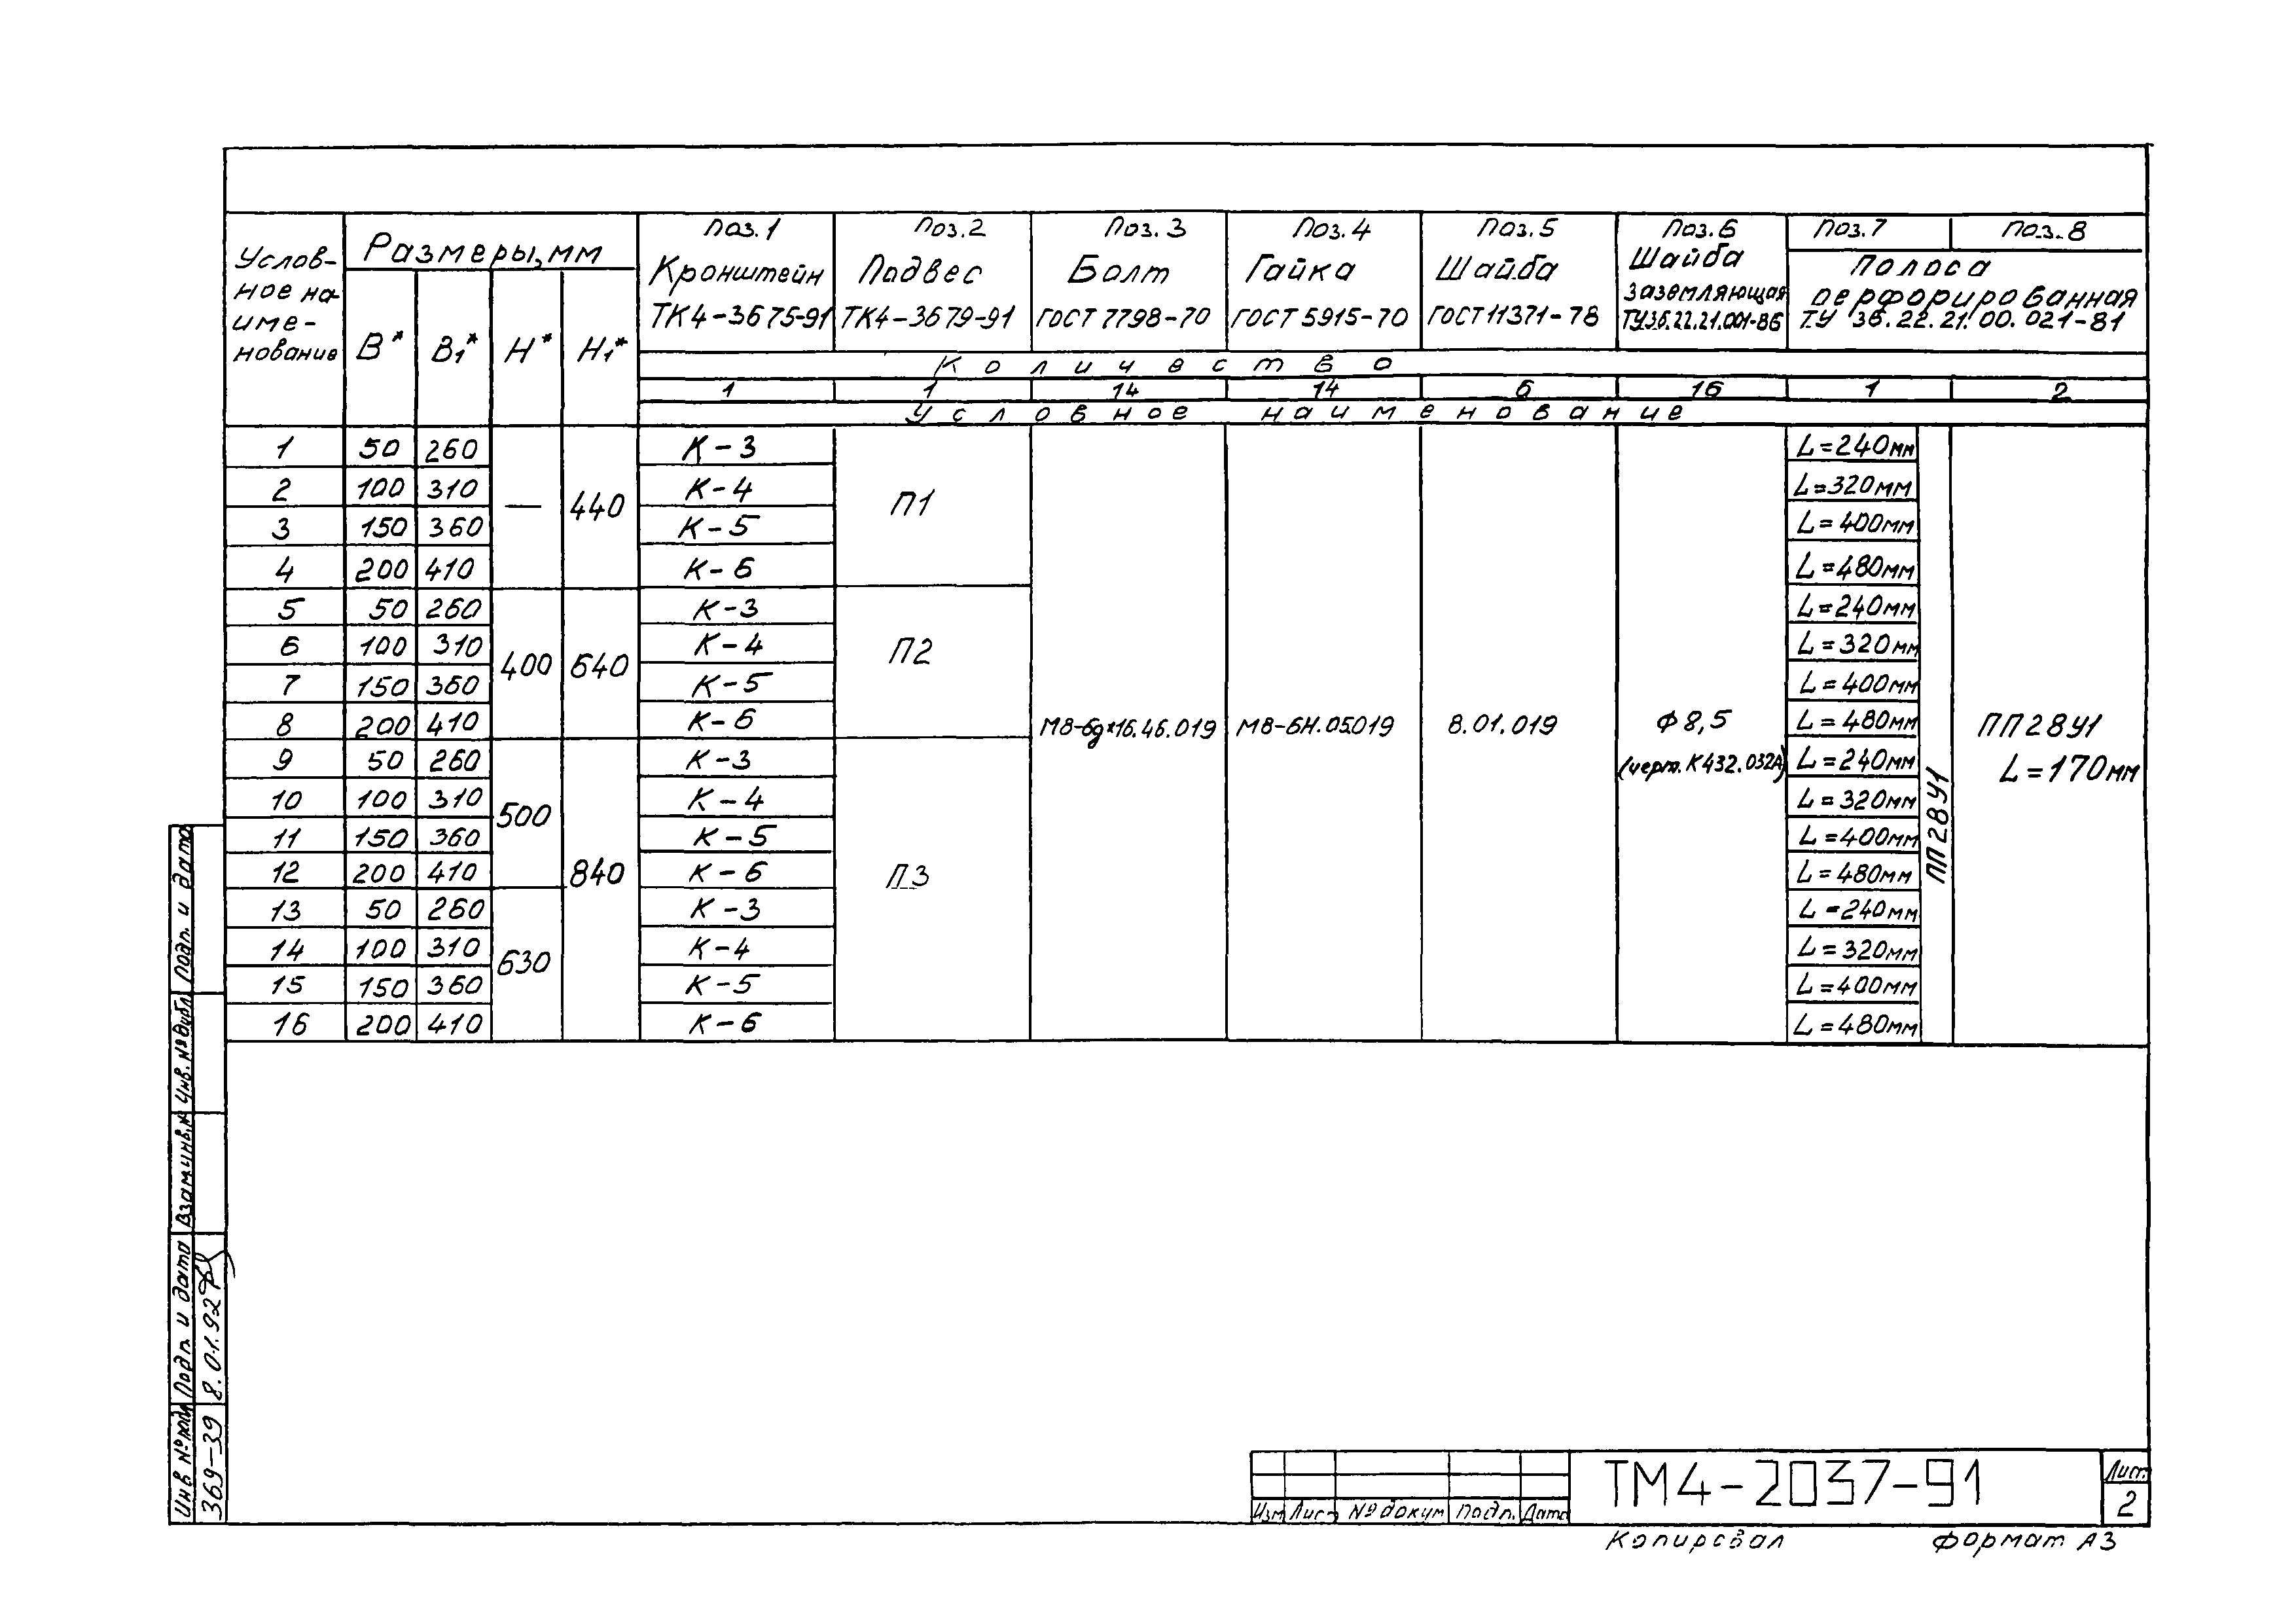 Услов-
ное на-
име-
нование
Размеры, мм
В* В₁* Н* Н₁*
Поз.1 Поз.2 Поз.3 Поз.4 Поз.5 Поз.6 Поз.7 Поз.8
Кронштейн Подвес Болт Гайка Шайба Шайба заземляющая Полоса перфорированная
ТК4-3675-91 ТК4-3679-91 ГОСТ 7798-70 ГОСТ 5915-70 ГОСТ 11371-78 ТУ36.22.21.001-86 ТУ 36.22.21.00.021-81
Количество
1 1 14 14 6 16 1 2
Условное наименование
1 50 260 К-3 L=240мм
2 100 310 — 440 К-4 П1 L=320мм
3 150 360 К-5 L=400мм
4 200 410 К-6 L=480мм
5 50 260 К-3 L=240мм
6 100 310 К-4 L=320мм
400 640 П2
7 150 360 К-5 L=400мм
8 200 410 К-6 L=480мм
М8-6g×16.46.019 М8-6Н.05.019 8.01.019 Ф8,5 ПП28У1
(черт. К432.032А) L=170мм
9 50 260 К-3 L=240мм
10 100 310 К-4 L=320мм
500
ПП28У1
11 150 360 К-5 L=400мм
12 200 410 840 К-6 П3 L=480мм
13 50 260 К-3 L=240мм
14 100 310 К-4 L=320мм
630
15 150 360 К-5 L=400мм
16 200 410 К-6 L=480мм
Подп. и дата
Инв. № дубл
Взам.инв.№
Подп. и дата
8.01.92
Инв № подл
369-39
Изм Лист № докум Подп. Дата
ТМ4-2037-91
Лист
2
Копировал Формат А3